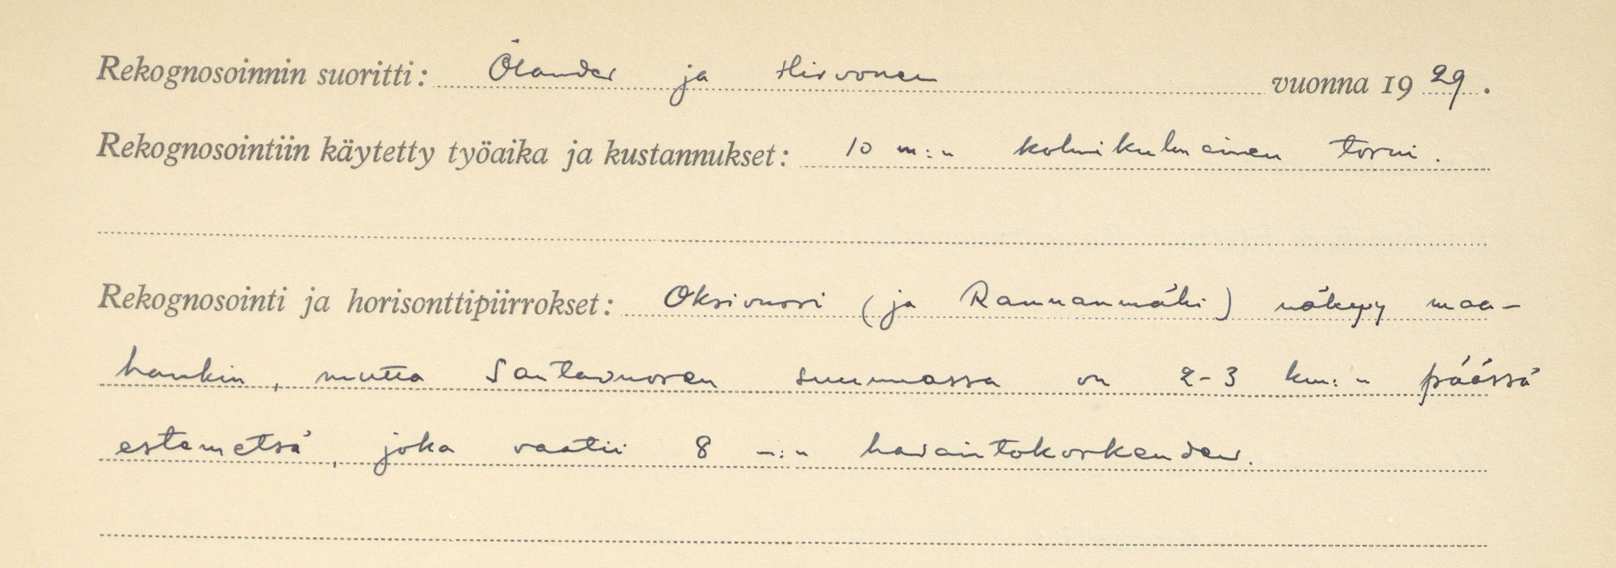 Rekognosoinnin suoritti: Ölander ja Hirvonen vuonna 1929.
Rekognosointiin käytetty työaika ja kustannukset: 10 m:n kolmikulmainen torni.
Rekognosointi ja horisonttipiirrokset: Oksivuori (ja Rannanmäki) näkyy maa-
hankin, mutta Santavuoren suunnassa on 2-3 km:n päässä
estemetsä, joka vaatii 8 m:n havaintokorkeuden.